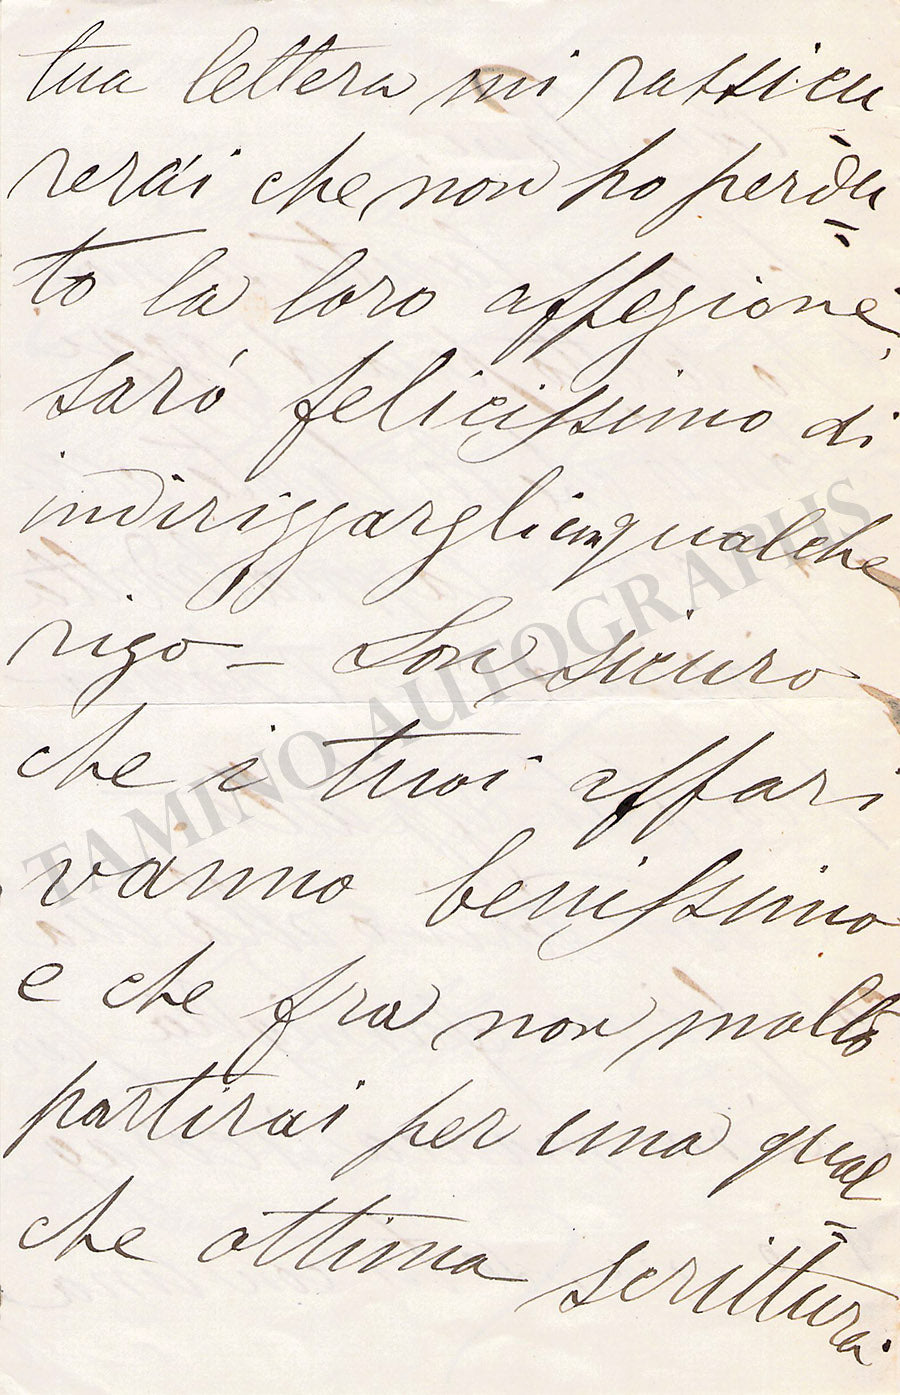 tua lettera mi rassicu
rerai che non ho perdu=
to la loro affezione,
sarò felicissimo di
indirizzargli qualche
rigo — Son sicuro
che i tuoi affari
vanno benissimo
e che fra non molto
partirai per una qual=
che ottima scrittura.
TAMINO AUTOGRAPHS